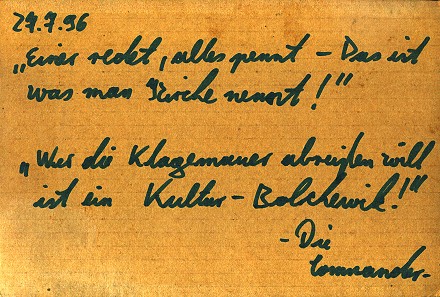 29.7.96
„Einer redet, alles pennt – Das ist
was man Kirche nennt!"
„Wer die Klagemauer abreißen will
ist ein Kultur-Bolchewik!"
- Die
Commander-